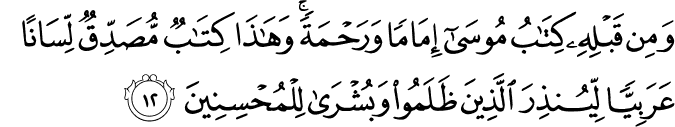 وَمِن قَبْلِهِۦ كِتَٰبُ مُوسَىٰٓ إِمَامًا وَرَحْمَةً ۚ وَهَٰذَا كِتَٰبٌ مُّصَدِّقٌ لِّسَانًا
عَرَبِيًّا لِّيُنذِرَ ٱلَّذِينَ ظَلَمُوا۟ وَبُشْرَىٰ لِلْمُحْسِنِينَ ١٢